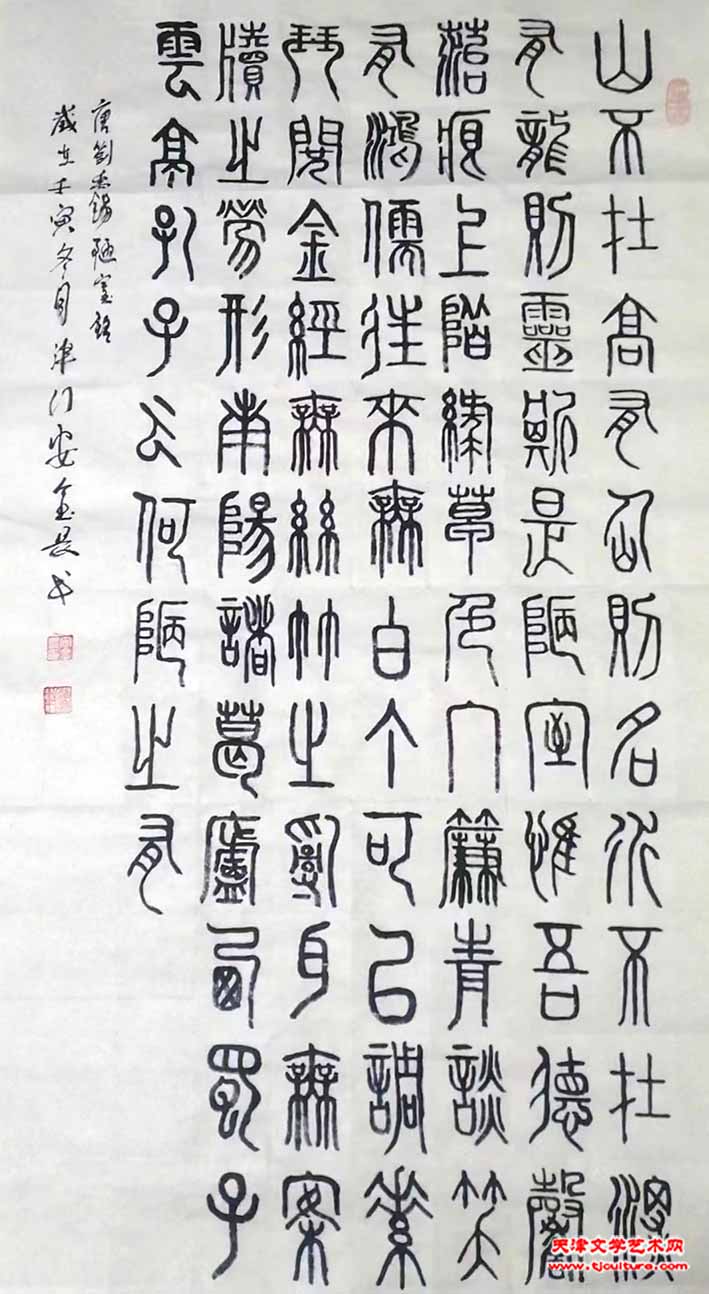 山不在高有仙則名水不在深
有龍則靈斯是陋室惟吾德馨
苔痕上階綠草色入簾青談笑
有鴻儒往來無白丁可以調素
琴閱金經無絲竹之亂耳無案
牘之勞形南陽諸葛廬西蜀子
雲亭孔子云何陋之有
唐劉禹錫陋室銘
歲在壬寅冬月津门安金书
天津文学艺术网
www.tjculture.com